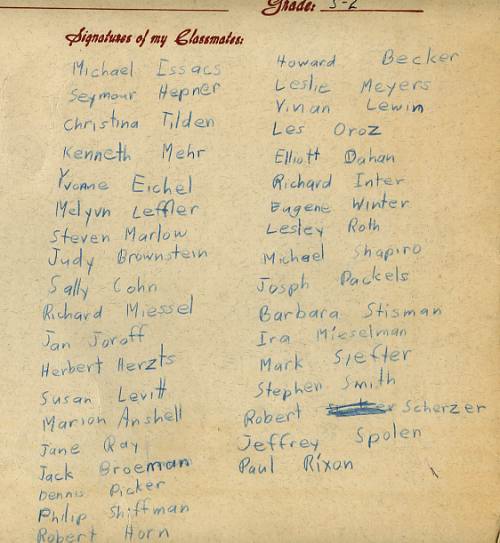 Grade: 5-2
Signatures of my Classmates:
Michael Issacs
Seymour Hepner
Christina Tilden
Kenneth Mehr
Yvonne Eichel
Melyvn Leffler
Steven Marlow
Judy Brownstein
Sally Cohn
Richard Miessel
Jan Joroff
Herbert Herzts
Susan Levitt
Marion Anshell
Jane Ray
Jack Broeman
Dennis Picker
Philip Shiffman
Robert Horn
Howard Becker
Leslie Meyers
Vivian Lewin
Les Oroz
Elliott Dahan
Richard Inter
Eugene Winter
Lesley Roth
Michael Shapiro
Josph Packels
Barbara Stisman
Ira Mieselman
Mark Siefter
Stephen Smith
Robert Scherzer
Jeffrey Spolen
Paul Rixon